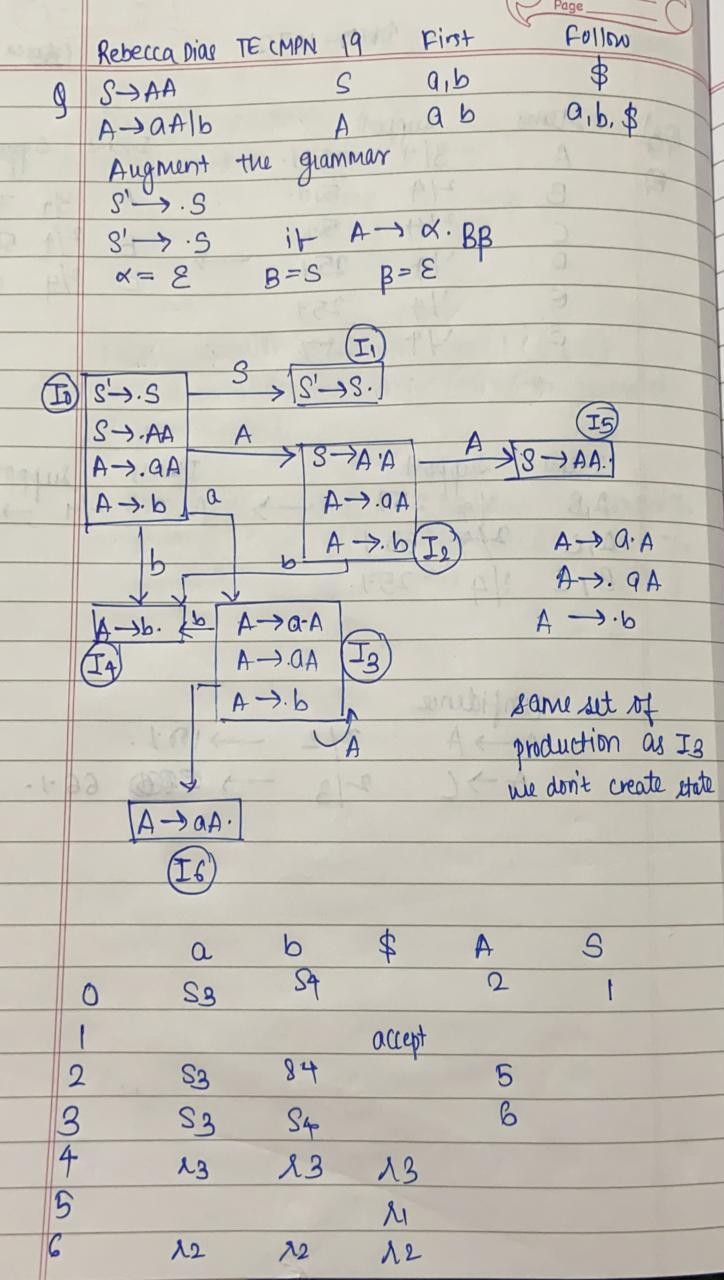 Page
Rebecca Dias TE CMPN 19 First Follow
Q S→AA S a,b $
A→aA|b A a b a,b,$
Augment the grammar
S'→.S
S'→.S if A→α.Bβ
α=ε B=S β=ε
I1
I0 S'→.S S S'→S.
I5
S→.AA A S→A.A A S→AA.
A→.aA A→.aA
A→.b a A→.b I2 A→a.A
b b A→.aA
A→.b
A→b. b A→a.A
I4 A→.aA I3
A→.b same set of
A production as I3
we don't create state
A→aA.
I6
a b $ A S
0 S3 S4 2 1
1 accept
2 S3 S4 5
3 S3 S4 6
4 r3 r3 r3
5 r1
6 r2 r2 r2